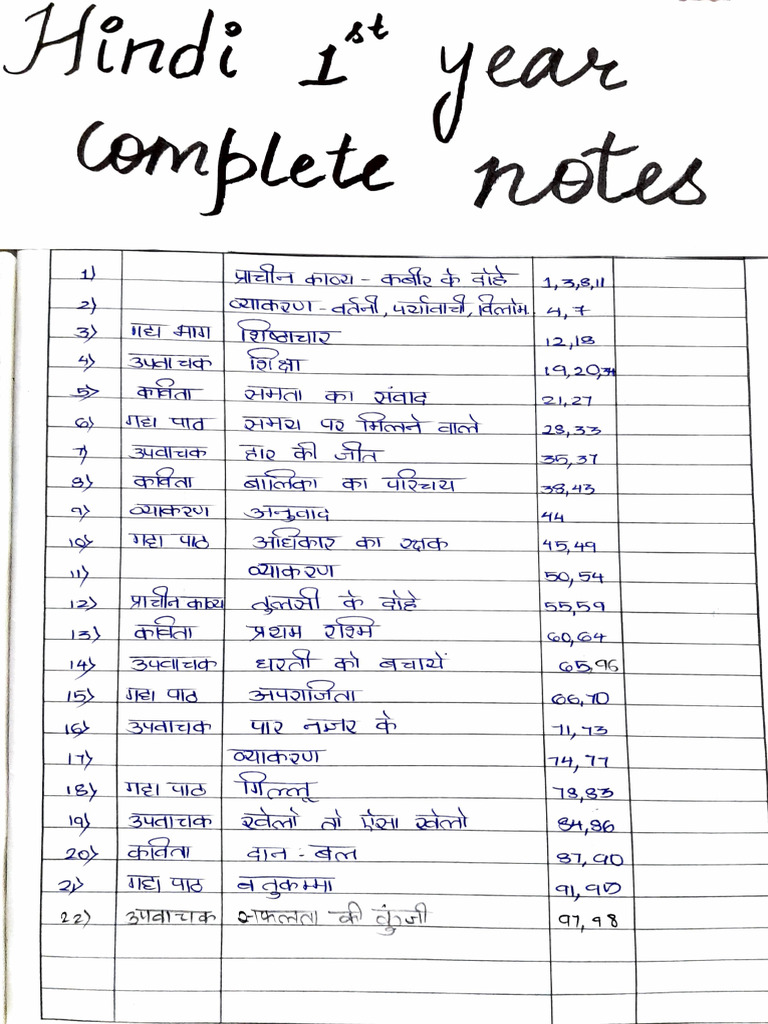 Hindi 1st year
complete notes
1) प्राचीन काव्य - कबीर के दोहे 1,3,8,11
2) व्याकरण - वर्तनी, पर्यायवाची, विलोम. 4,7
3) गद्य भाग शिष्टाचार 12,18
4) उपवाचक शिक्षा 19,20,
5) कविता समता का संवाद 21,27
6) गद्य पाठ समय पर मिलने वाले 28,33
7) उपवाचक हार की जीत 35,37
8) कविता बालिका का परिचय 38,43
9) व्याकरण अनुवाद 44
10) गद्य पाठ अधिकार का रक्षक 45,49
11) व्याकरण 50,54
12) प्राचीन काव्य तुलसी के दोहे 55,59
13) कविता प्रथम रश्मि 60,64
14) उपवाचक धरती को बचायें 65,96
15) गद्य पाठ अपराजिता 66,70
16) उपवाचक पार नज़र के 71,73
17) व्याकरण 74,77
18) गद्य पाठ गिल्लू 78,83
19) उपवाचक खेलो तो ऐसा खेलो 84,86
20) कविता दान - बल 87,90
21) गद्य पाठ बतुकम्मा 91,
22) उपवाचक सफलता की कुंजी 97,98